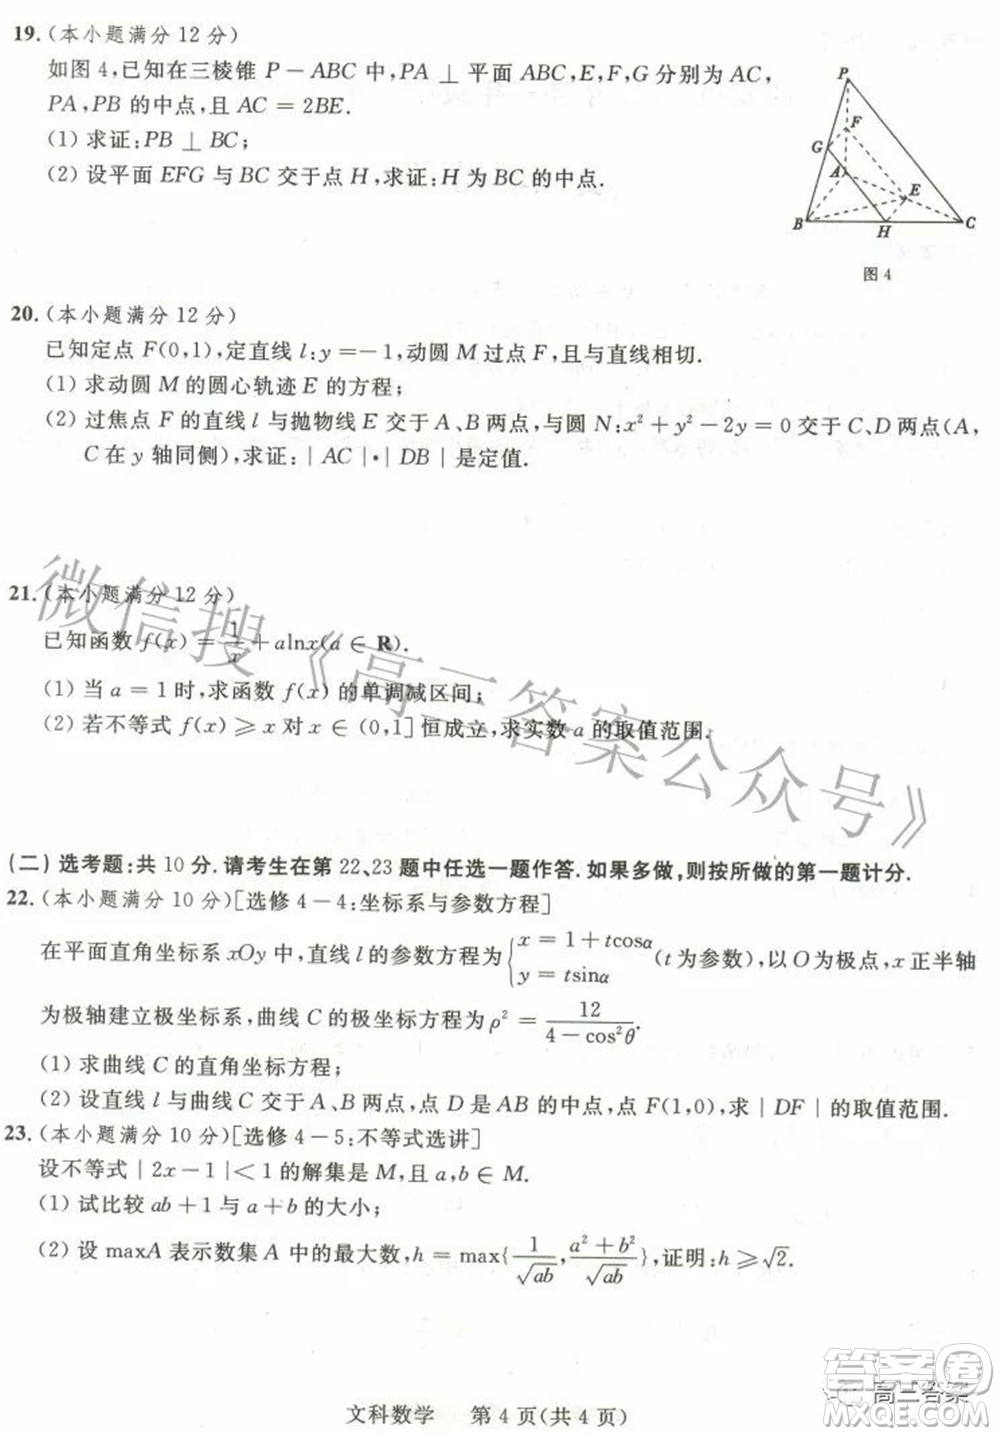 19.(本小题满分12分)
如图4,已知在三棱锥 P－ABC 中,PA ⊥ 平面 ABC,E,F,G 分别为 AC,
PA,PB 的中点,且 AC＝2BE.
(1) 求证:PB ⊥ BC;
(2) 设平面 EFG 与 BC 交于点 H,求证:H 为 BC 的中点.
P
F
G
A
E
B
H
C
图4
20.(本小题满分12分)
已知定点 F(0,1),定直线 l:y＝－1,动圆 M 过点 F,且与直线相切.
(1) 求动圆 M 的圆心轨迹 E 的方程;
(2) 过焦点 F 的直线 l 与抛物线 E 交于 A、B 两点,与圆 N:x²＋y²－2y＝0 交于 C、D 两点(A,
C 在 y 轴同侧),求证:|AC|·|DB|是定值.
21.(本小题满分12分)
已知函数 f(x)＝1/x＋alnx(a ∈ R).
(1) 当 a＝1 时,求函数 f(x) 的单调减区间;
(2) 若不等式 f(x) ≥ x 对 x ∈ (0,1] 恒成立,求实数 a 的取值范围.
微信搜《高三答案公众号》
(二) 选考题:共10分.请考生在第22、23题中任选一题作答.如果多做,则按所做的第一题计分.
22.(本小题满分10分)[选修4－4:坐标系与参数方程]
在平面直角坐标系 xOy 中,直线 l 的参数方程为 { x＝1＋tcosα y＝tsinα (t 为参数),以 O 为极点,x 正半轴
为极轴建立极坐标系,曲线 C 的极坐标方程为 ρ²＝12/(4－cos²θ).
(1) 求曲线 C 的直角坐标方程;
(2) 设直线 l 与曲线 C 交于 A、B 两点,点 D 是 AB 的中点,点 F(1,0),求|DF|的取值范围.
23.(本小题满分10分)[选修4－5:不等式选讲]
设不等式|2x－1|＜1 的解集是 M,且 a,b ∈ M.
(1) 试比较 ab＋1 与 a＋b 的大小;
(2) 设 maxA 表示数集 A 中的最大数,h＝max{1/√ab,(a²＋b²)/√ab},证明:h ≥ √2.
文科数学 第4页(共4页)
高三答案
答案圈
MXQE.COM